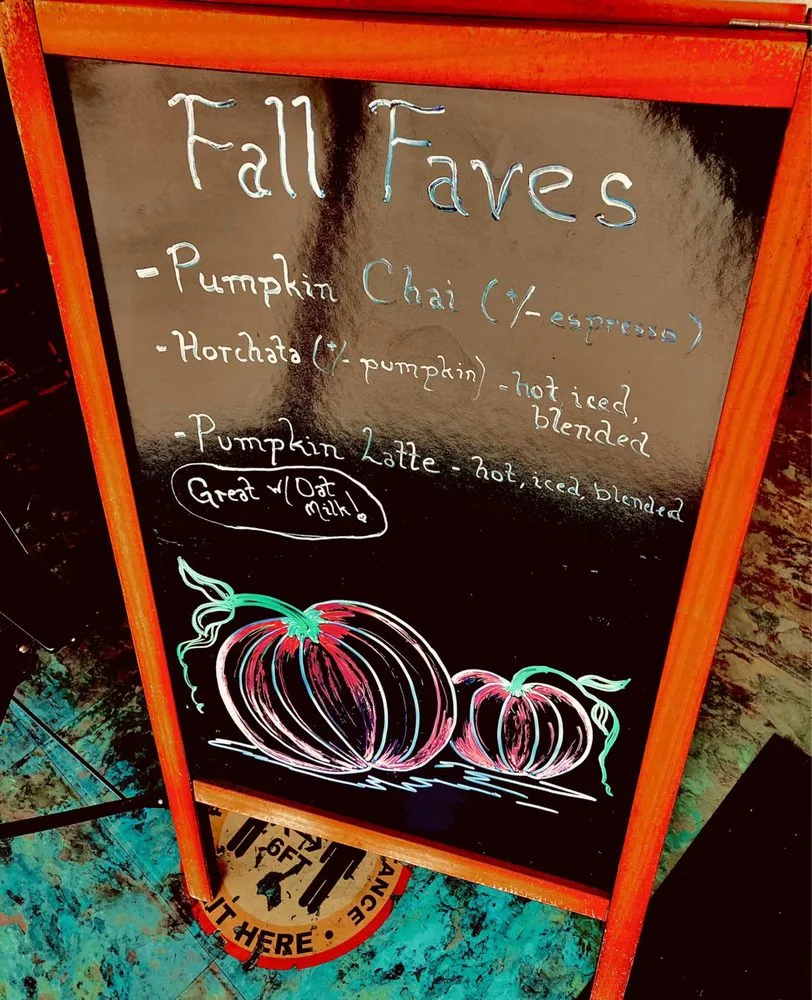 Fall Faves
- Pumpkin Chai (+/- espresso)
- Horchata (+/- pumpkin) - hot, iced,
blended
- Pumpkin Latte - hot, iced, blended
Great w/ Oat
Milk!
6FT
ANCE
IT HERE •